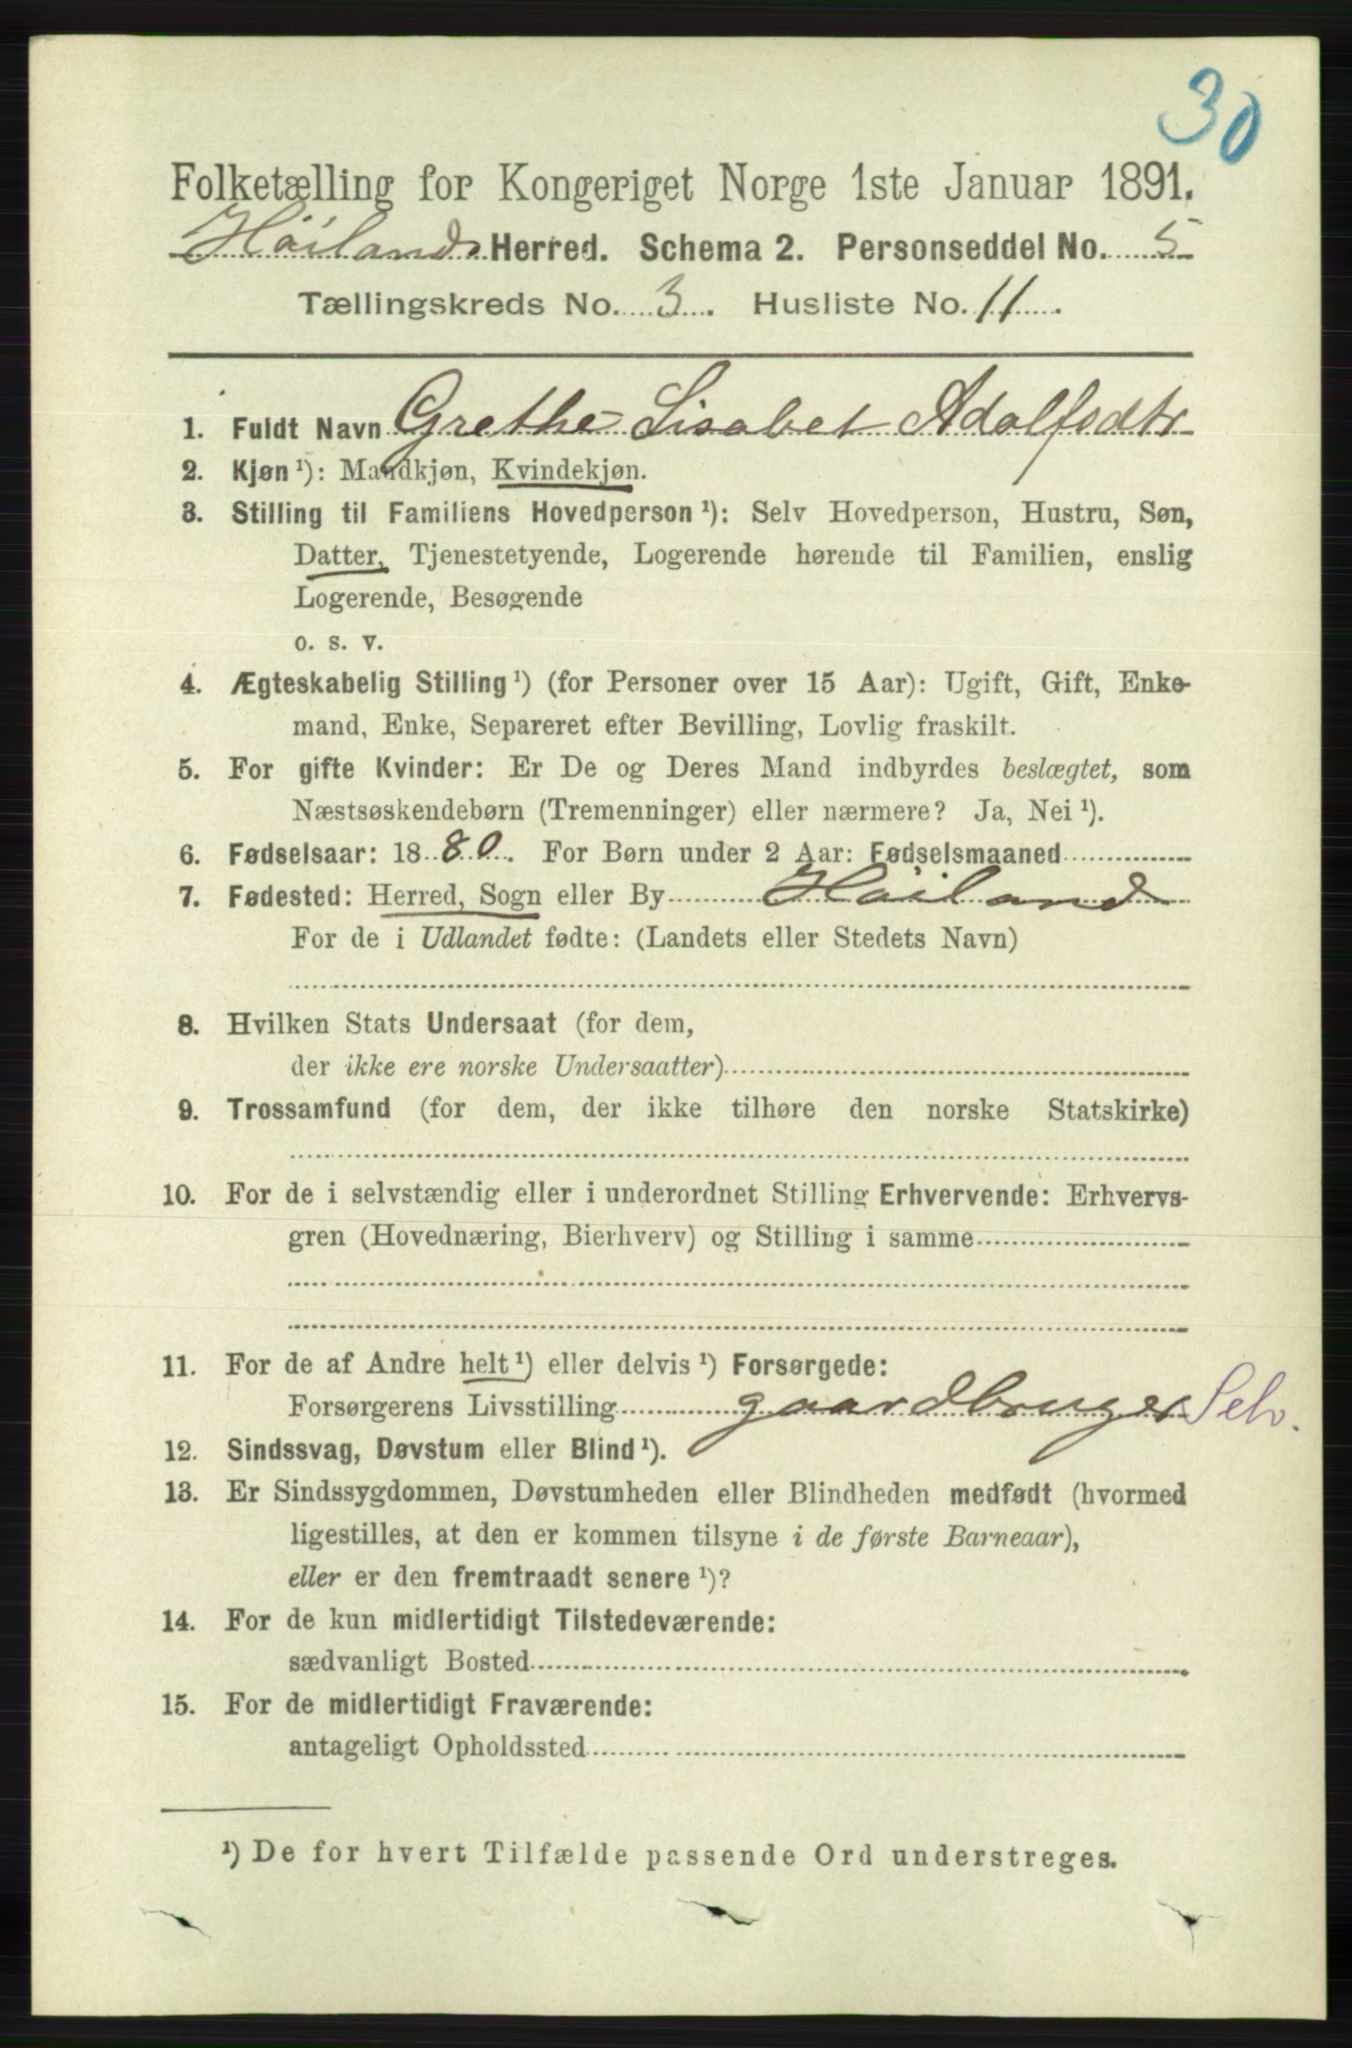 30
Folketælling for Kongeriget Norge 1ste Januar 1891.
Höilands Herred. Schema 2. Personseddel No. 5
Tællingskreds No. 3. Husliste No. 11.
1. Fuldt Navn Grethe Lisabet Adolfsdtr
2. Kjøn ¹): Mandkjøn, Kvindekjøn.
3. Stilling til Familiens Hovedperson ¹): Selv Hovedperson, Hustru, Søn,
Datter, Tjenestetyende, Logerende hørende til Familien, enslig
Logerende, Besøgende
o. s. v.
4. Ægteskabelig Stilling ¹) (for Personer over 15 Aar): Ugift, Gift, Enke-
mand, Enke, Separeret efter Bevilling, Lovlig fraskilt.
5. For gifte Kvinder: Er De og Deres Mand indbyrdes beslægtet, som
Næstsøskendebørn (Tremenninger) eller nærmere? Ja, Nei ¹).
6. Fødselsaar: 1880. For Børn under 2 Aar: Fødselsmaaned
7. Fødested: Herred, Sogn eller By Höiland
For de i Udlandet fødte: (Landets eller Stedets Navn)
8. Hvilken Stats Undersaat (for dem,
der ikke ere norske Undersaatter)
9. Trossamfund (for dem, der ikke tilhøre den norske Statskirke)
10. For de i selvstændig eller i underordnet Stilling Erhvervende: Erhvervs-
gren (Hovednæring, Bierhverv) og Stilling i samme
11. For de af Andre helt ¹) eller delvis ¹) Forsørgede:
Forsørgerens Livsstilling gaardbruger Selv.
12. Sindssvag, Døvstum eller Blind ¹).
13. Er Sindssygdommen, Døvstumheden eller Blindheden medfødt (hvormed
ligestilles, at den er kommen tilsyne i de første Barneaar),
eller er den fremtraadt senere ¹)?
14. For de kun midlertidigt Tilstedeværende:
sædvanligt Bosted
15. For de midlertidigt Fraværende:
antageligt Opholdssted
¹) De for hvert Tilfælde passende Ord understreges.